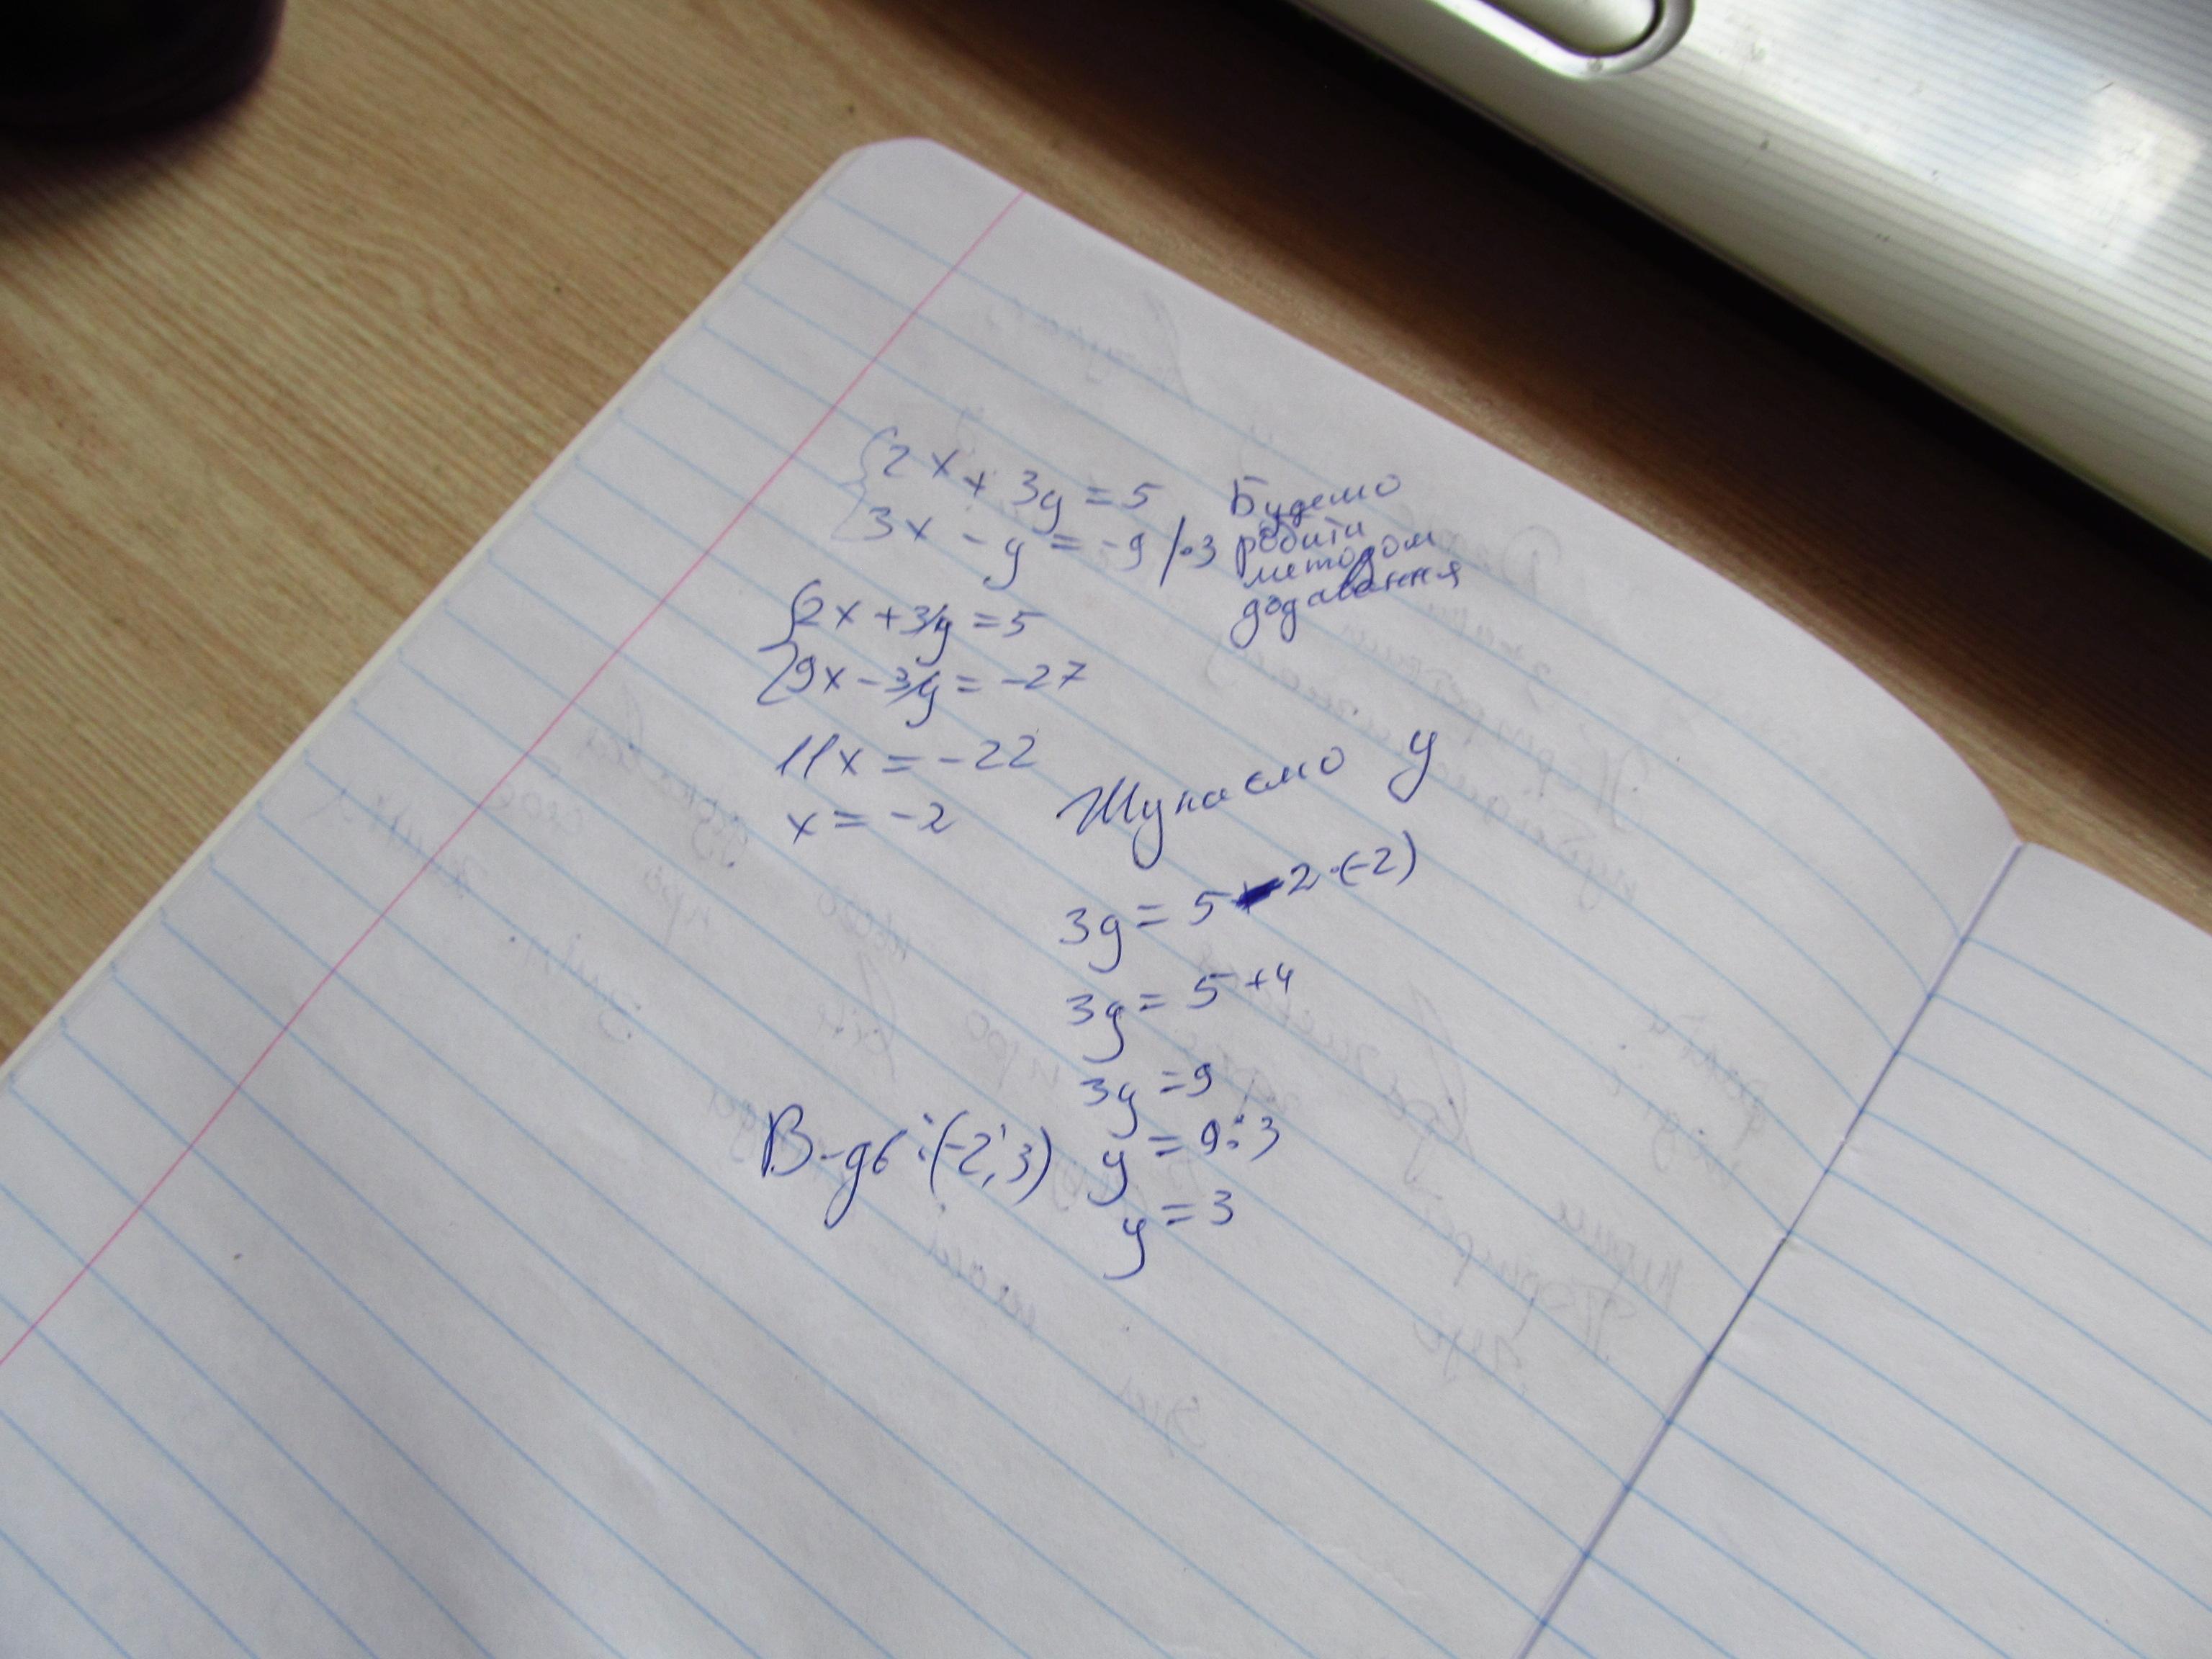 {2x + 3y = 5
3x - y = -9 /·3
Будемо
робити
методом
додавання
{2x + 3y = 5
9x - 3y = -27
11x = -22
x = -2
Шукаємо y
3y = 5 - 2·(-2)
3y = 5 + 4
3y = 9
y = 9:3
y = 3
В-дь: (-2; 3)